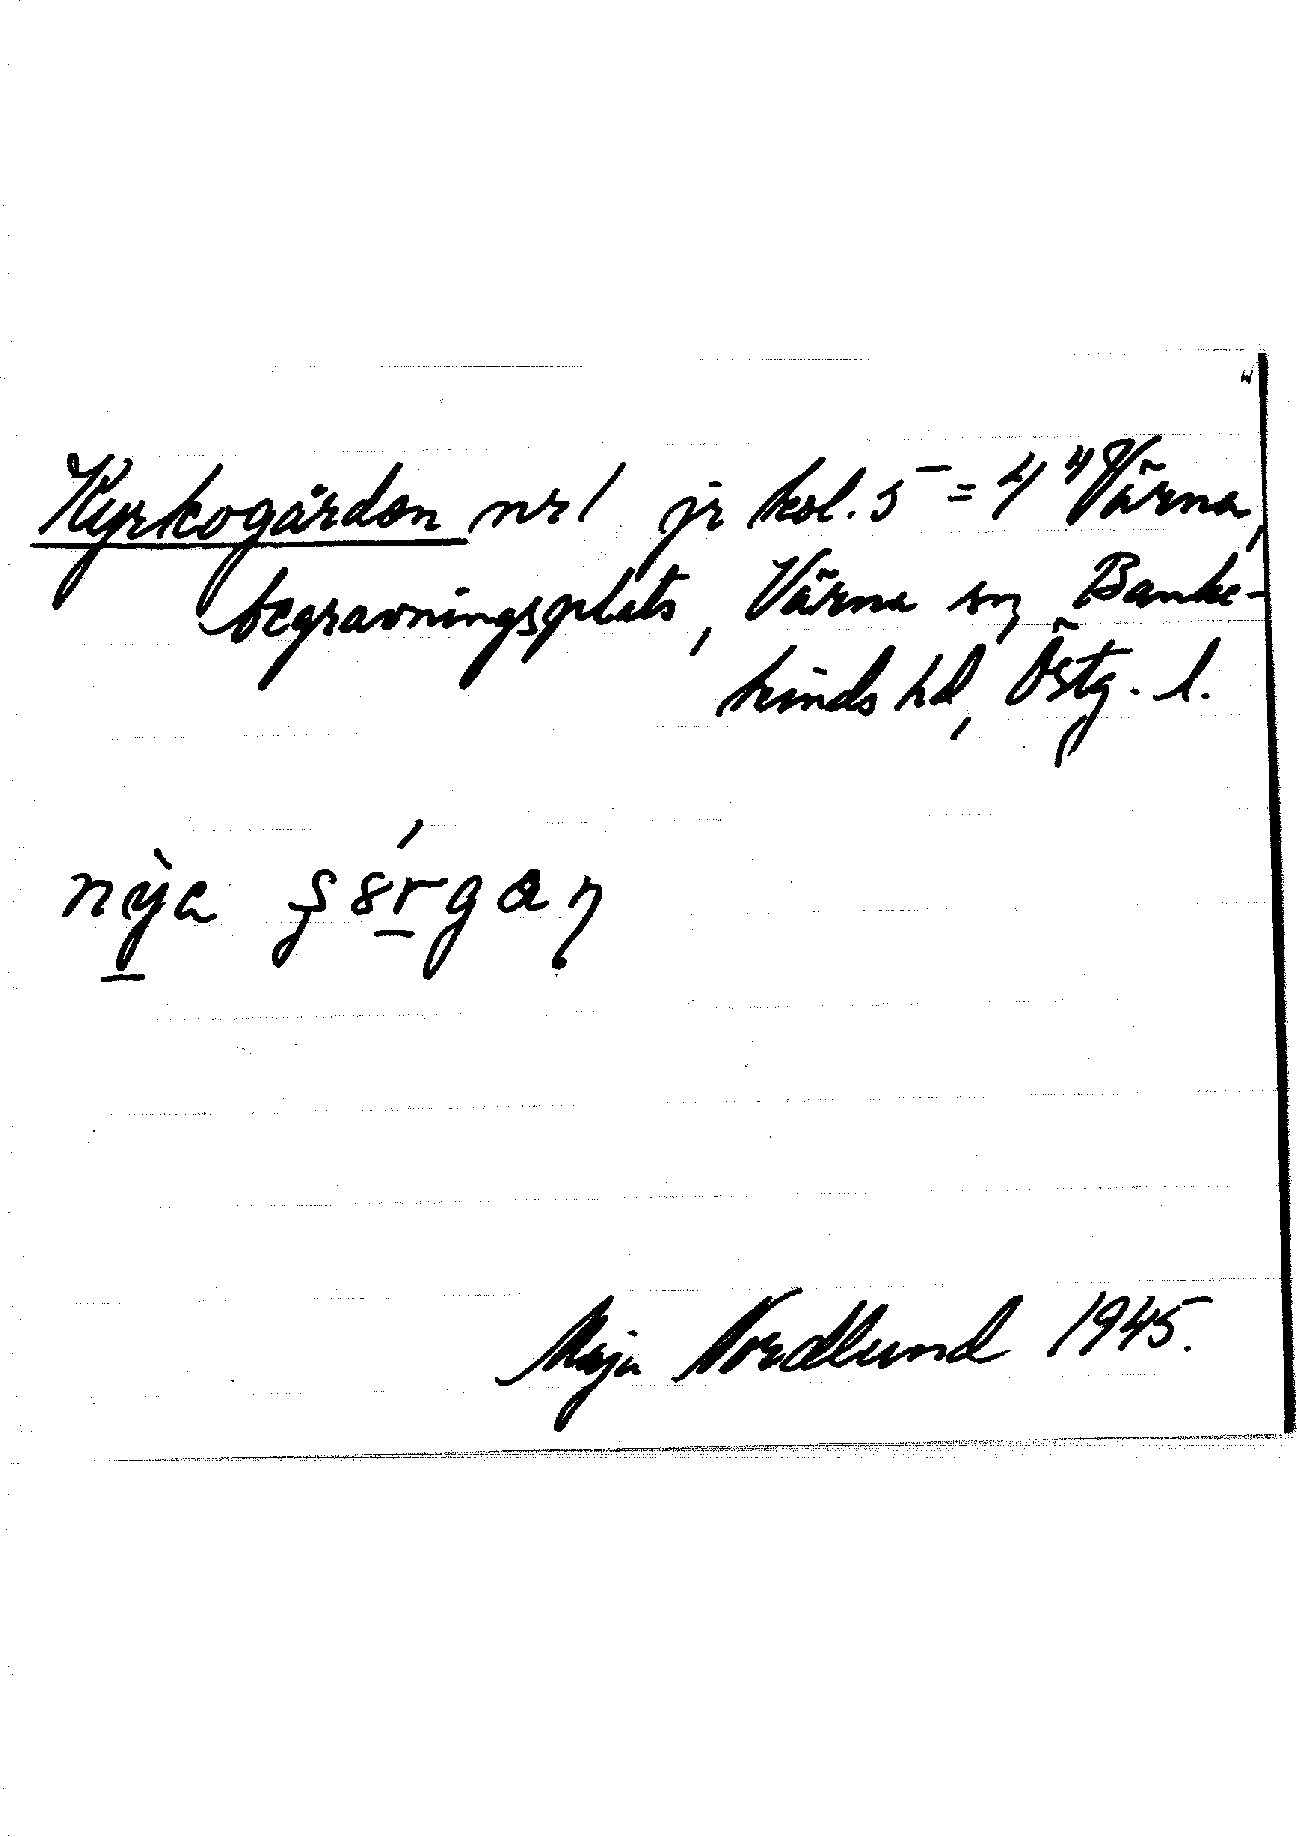 Kyrkogården nr 1 jr kol. 5 = 4 "Värna,
begravningsplats, Värna sn, Banke-
kinds hd, Östg. l.
Maja Nordlund 1945.